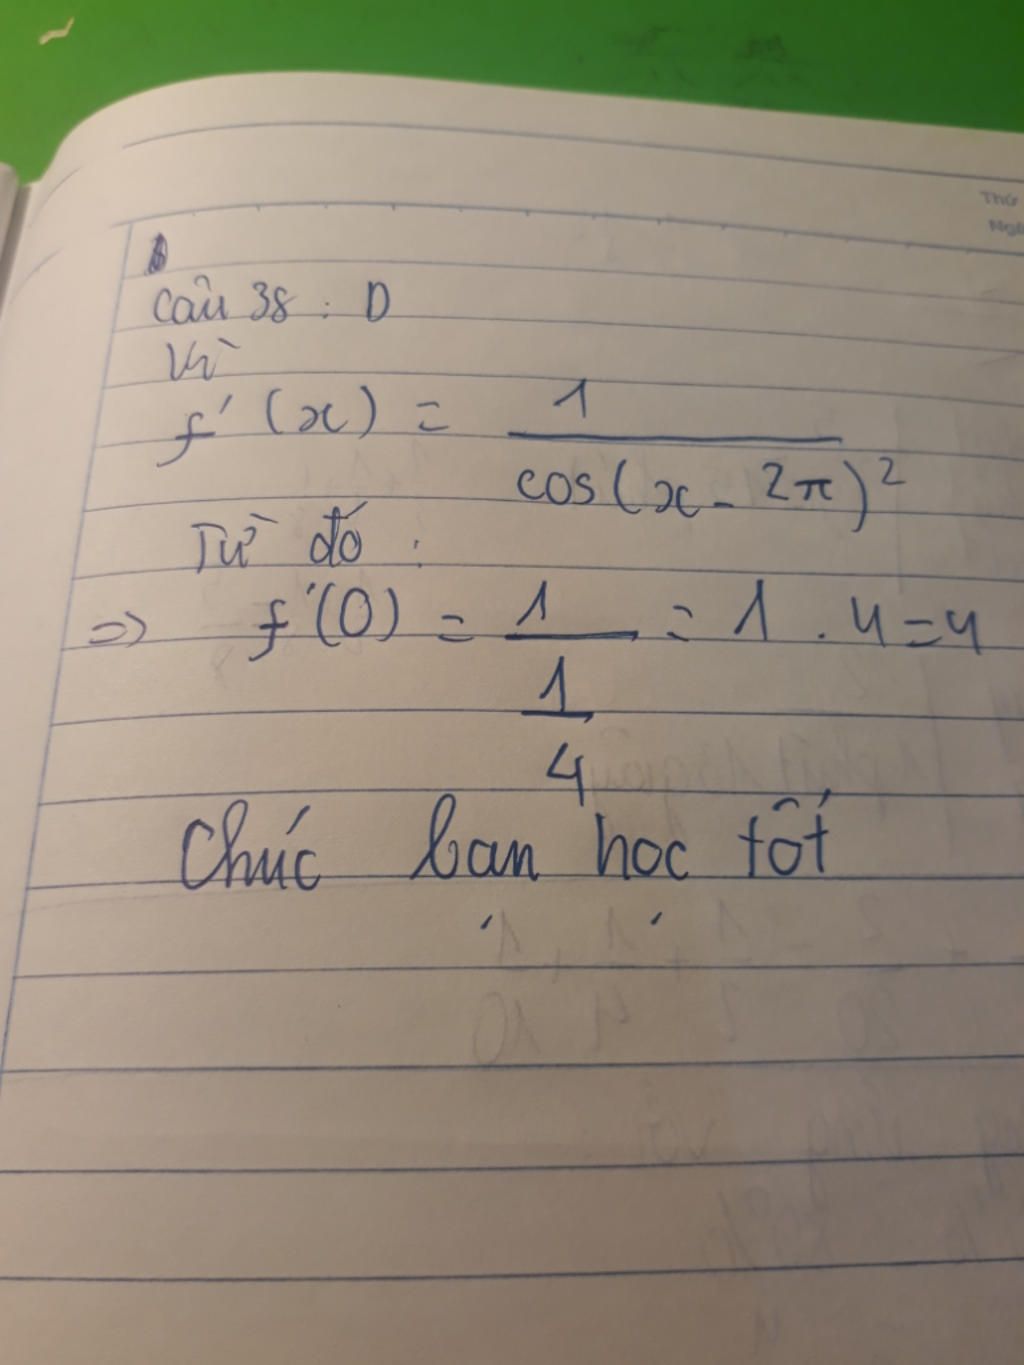 Thứ
Ngà
Câu 38 : D
Vì
f'(x) = 1 / cos(x - 2π)²
Từ đó :
=> f'(0) = 1 / (1/4) = 1 . 4 = 4
Chúc bạn học tốt